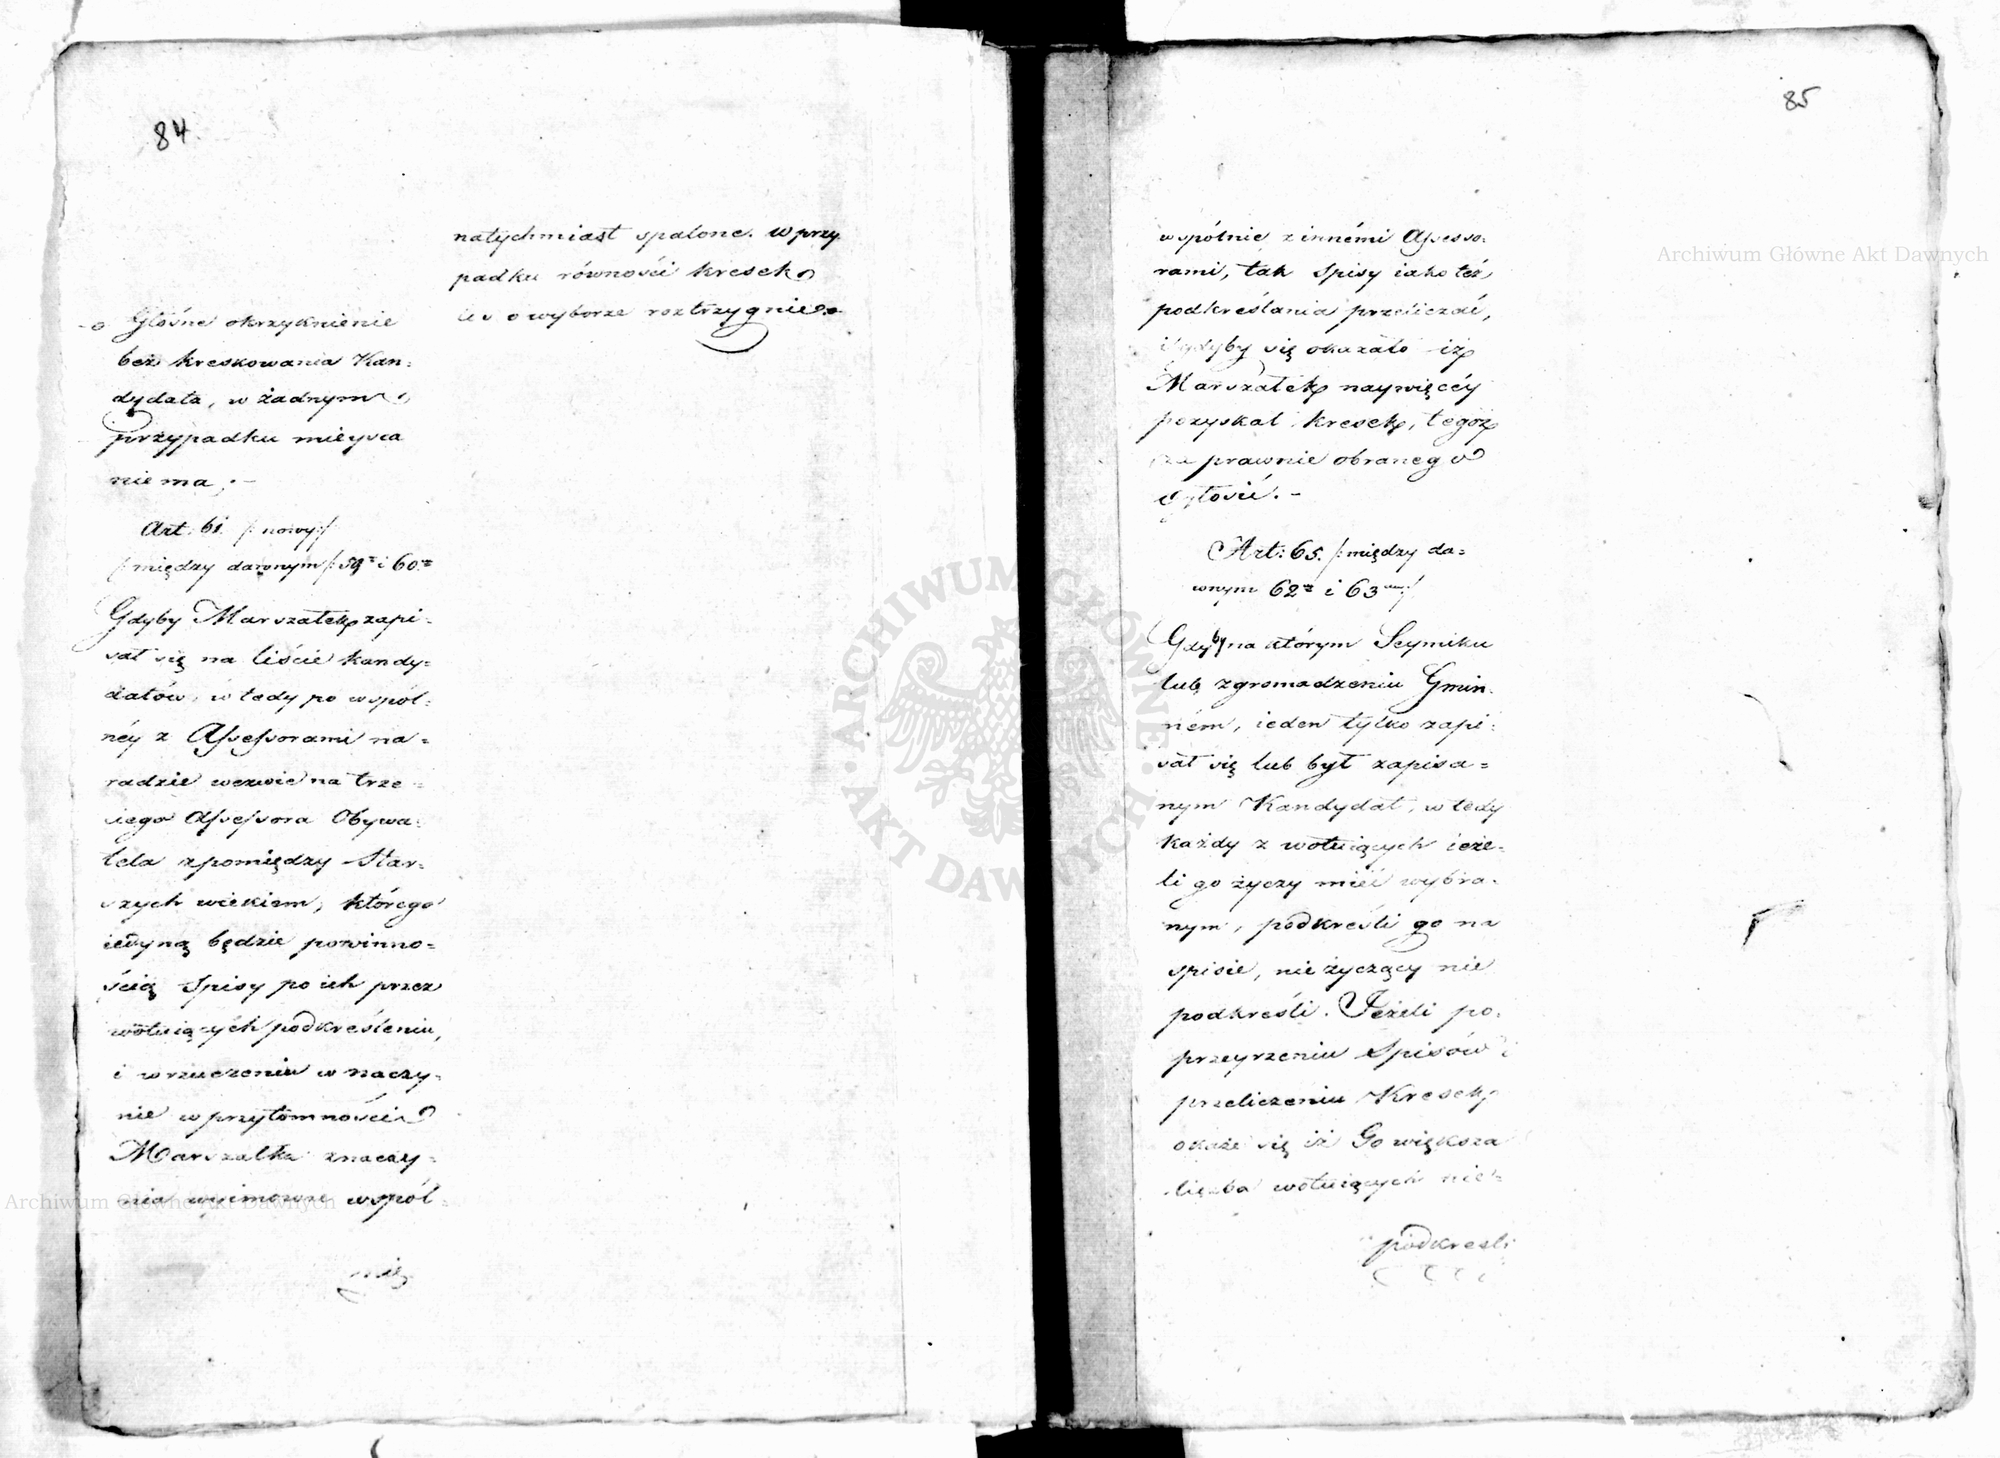 84.
natychmiast spalone. w przy
padku równości kresek
los o wyborze roztrzygnie.
Głośne okrzyknienie
bez kreskowania Kan=
dydata, w żadnym
przypadku mieysca
niema;-
Art: 61. /: nowy:/
/: między dawnym /: 59m i 60m
Gdyby Marszałek zapi=
sał się na liście kandy=
datów, w tedy po wspól=
néy z Assessorami na=
radzie wezwie na trze=
ciego Assessora Obywa=
tela z pomiędzy Star=
szych wiekiem, którego
iedyną będzie powinno=
ścią Spisy po ich przez
wotuiących podkreśleniu,
i wrzuczeniu w naczy=
nie w przytomności
Marszałka z naczy=
nia wyimować wspól=
nie
85
wspólnie z innémi Assesso=
rami, tak Spisy iako też
podkreślania przeliczać,
i gdyby się okazało iż
Marszałek naywięcéy
pozyskał kresek, tegoż
za prawnie obranego
ogłosić. -
Art: 65. /: między da=
wnym 62m i 63m:/
Gdyby na którym Seymiku
lub zgromadzeniu Gmin=
ném, ieden tylko zapi=
sał się lub był zapisa=
nym Kandydat, w tedy
każdy z wotuiących ieże=
li go życzy mieć wybra=
nym, podkreśli go na
spisie, nie życzący nie
podkreśli. Jeżeli po
przeyrzeniu Spisów i
przeliczeniu Kresek,
okaże się iż Go większa
liczba wotuiących nie=
podkreśli
Archiwum Główne Akt Dawnych
Archiwum Główne Akt Dawnych
ARCHIWUM GŁÓWNE
· AKT DAWNYCH ·